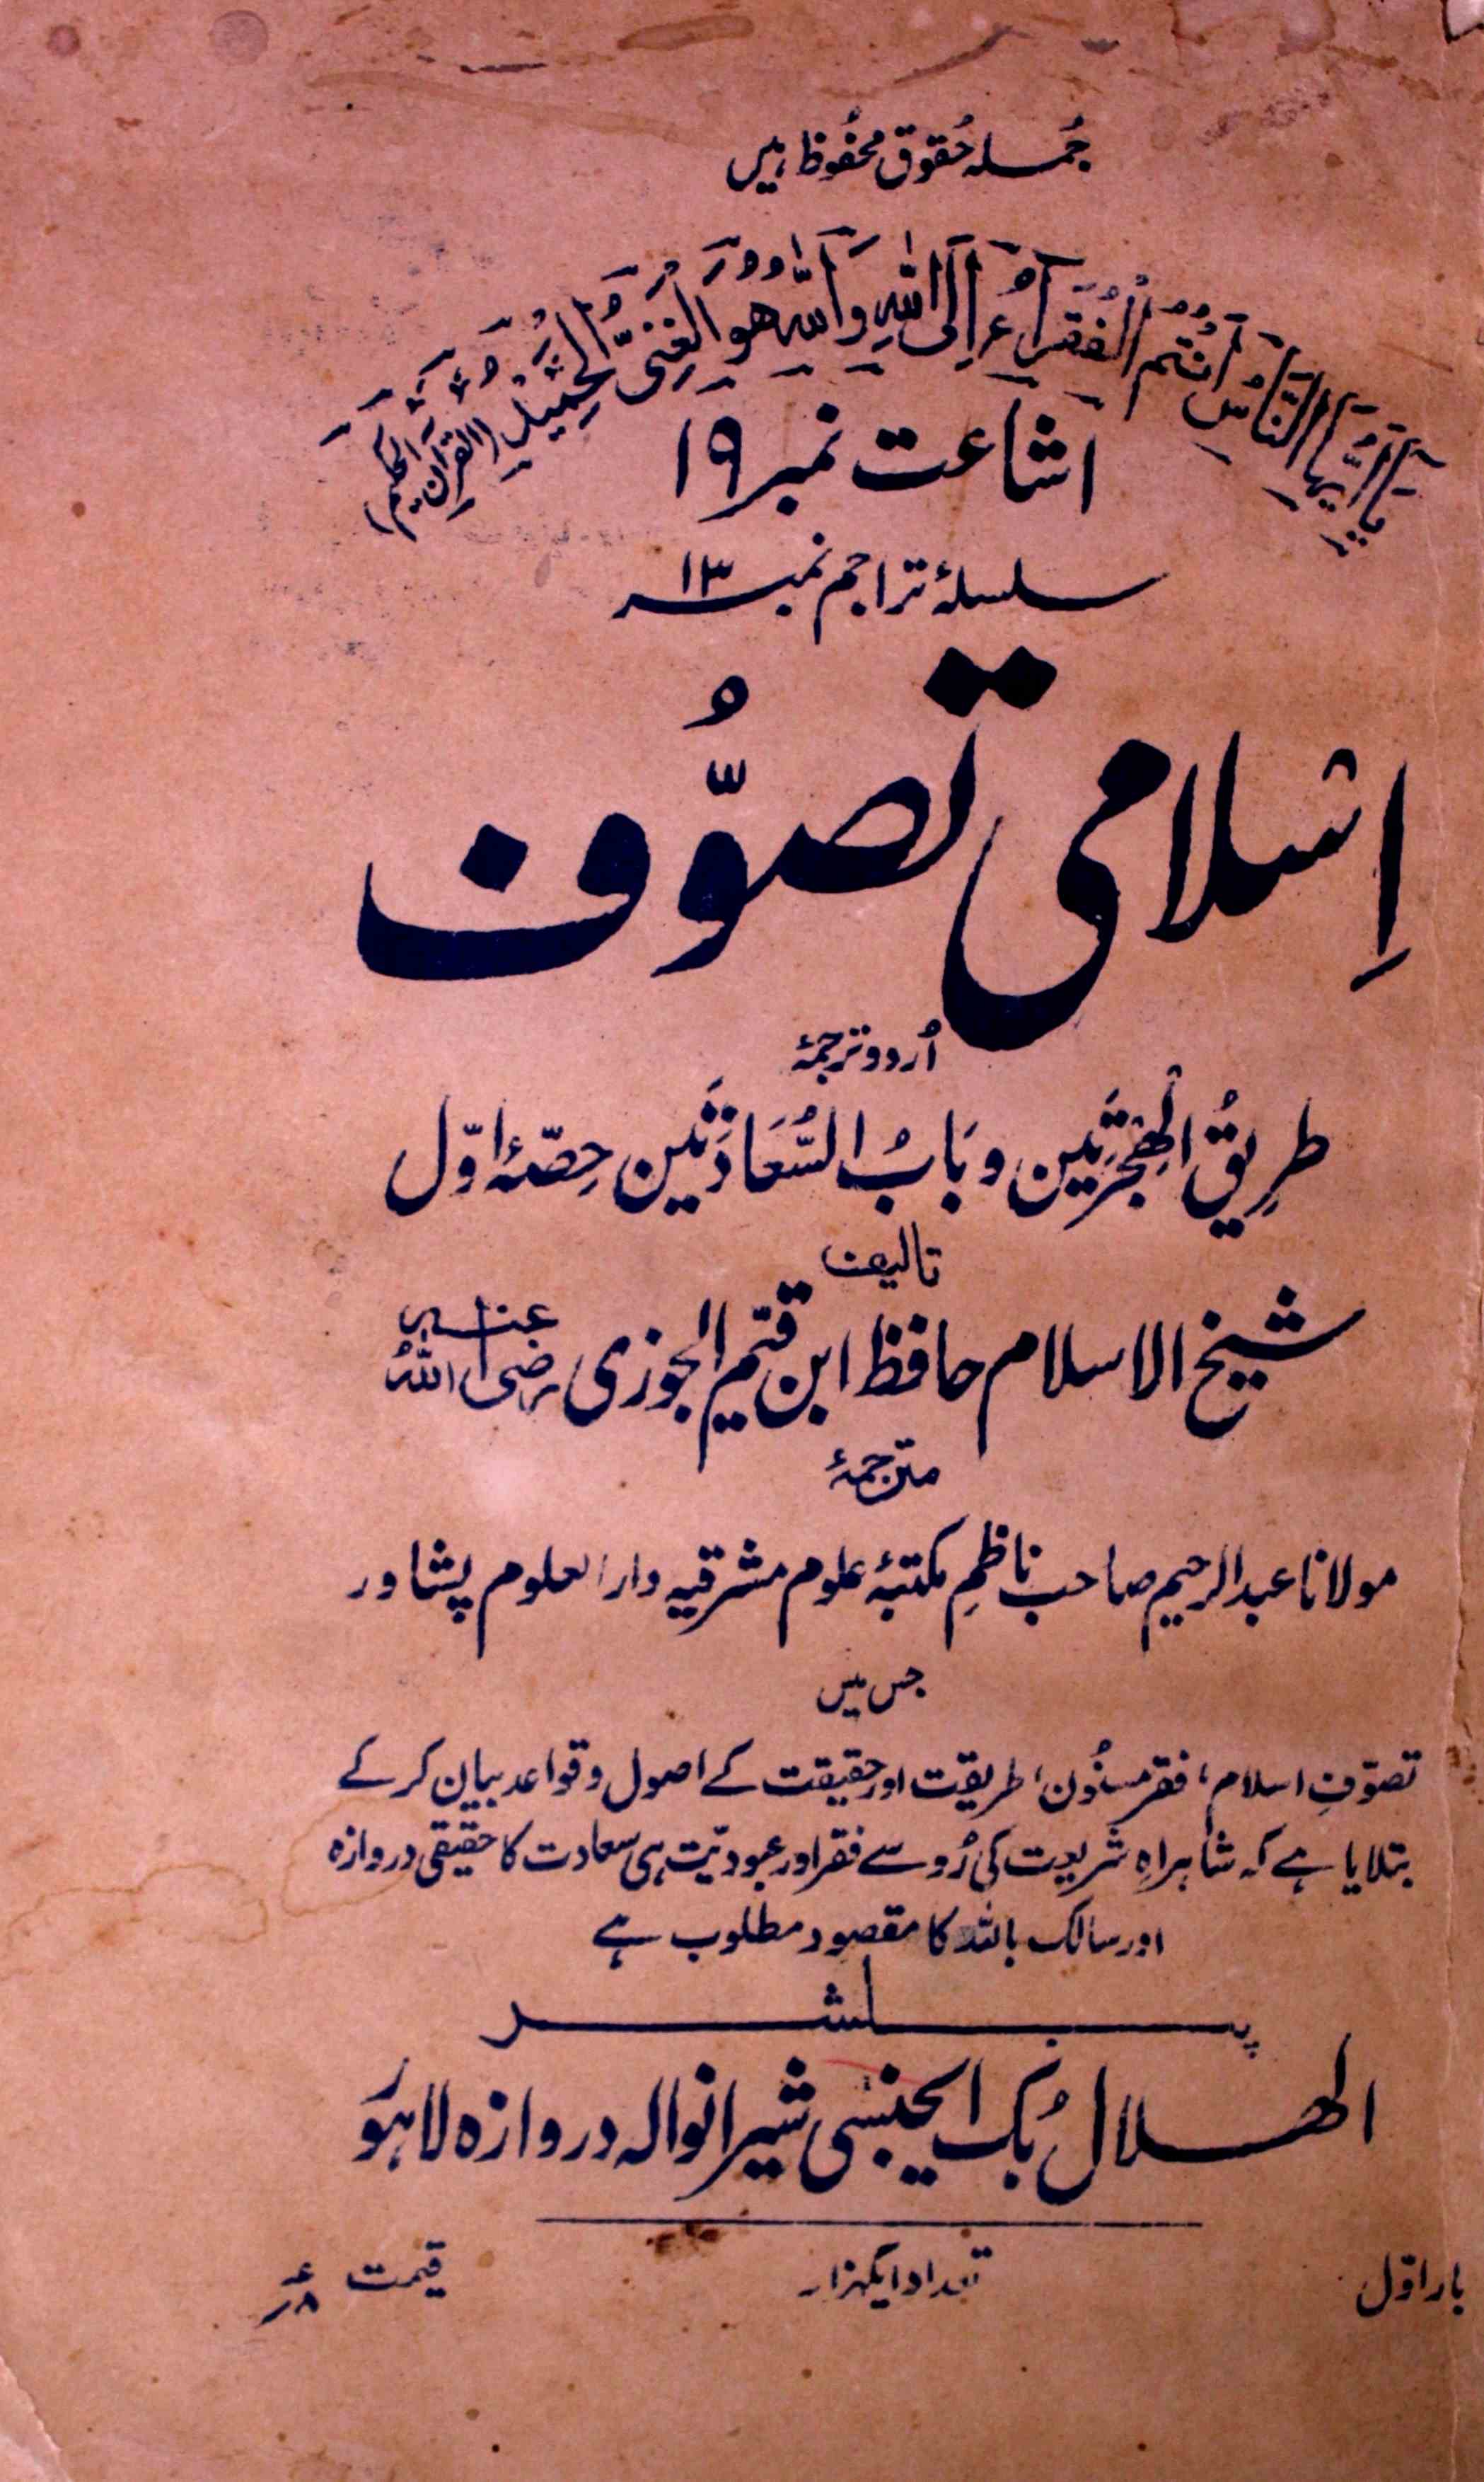 جُملہ حُقوق محفُوظ ہیں
يَا أَيُّهَا النَّاسُ أَنْتُمُ الْفُقَرَآءُ إِلَى اللّٰهِ وَاللّٰهُ هُوَ الْغَنِىُّ الْحَمِيْدُ (القرآن الحکیم)
اشاعت نمبر ۱۹
سلسلۂ تراجم نمبر ۱۳
اِسلامی تصوُّف
اُردو ترجمۂ
طرِیقُ الْھِجْرَتَین و بَابُ السُّعَادَتَین حِصّۂ اوّل
تالیف
شیخ الاسلام حافظ ابن قیّم الجوزی رضی اللّٰہُ عنہ
مترجمۂ
مولانا عبدالرحیم صاحب ناظمِ مکتبۂ علوم مشرقیہ دارالعلوم پشاور
جس میں
تصوّفِ اسلام، فقر مسنُون، طریقت اور حقیقت کے اصول و قواعد بیان کر کے
بتلایا ہے کہ شاہراہِ شریعت کی رُو سے فقر اور عبودیّت ہی سعادت کا حقیقی دروازہ
اور سالک باللہ کا مقصود مطلوب ہے
پبلشر
الھلال بُک ایجنسی شیرانوالہ دروازہ لاہور
بار اوّل
تعداد ایکہزار
قیمت